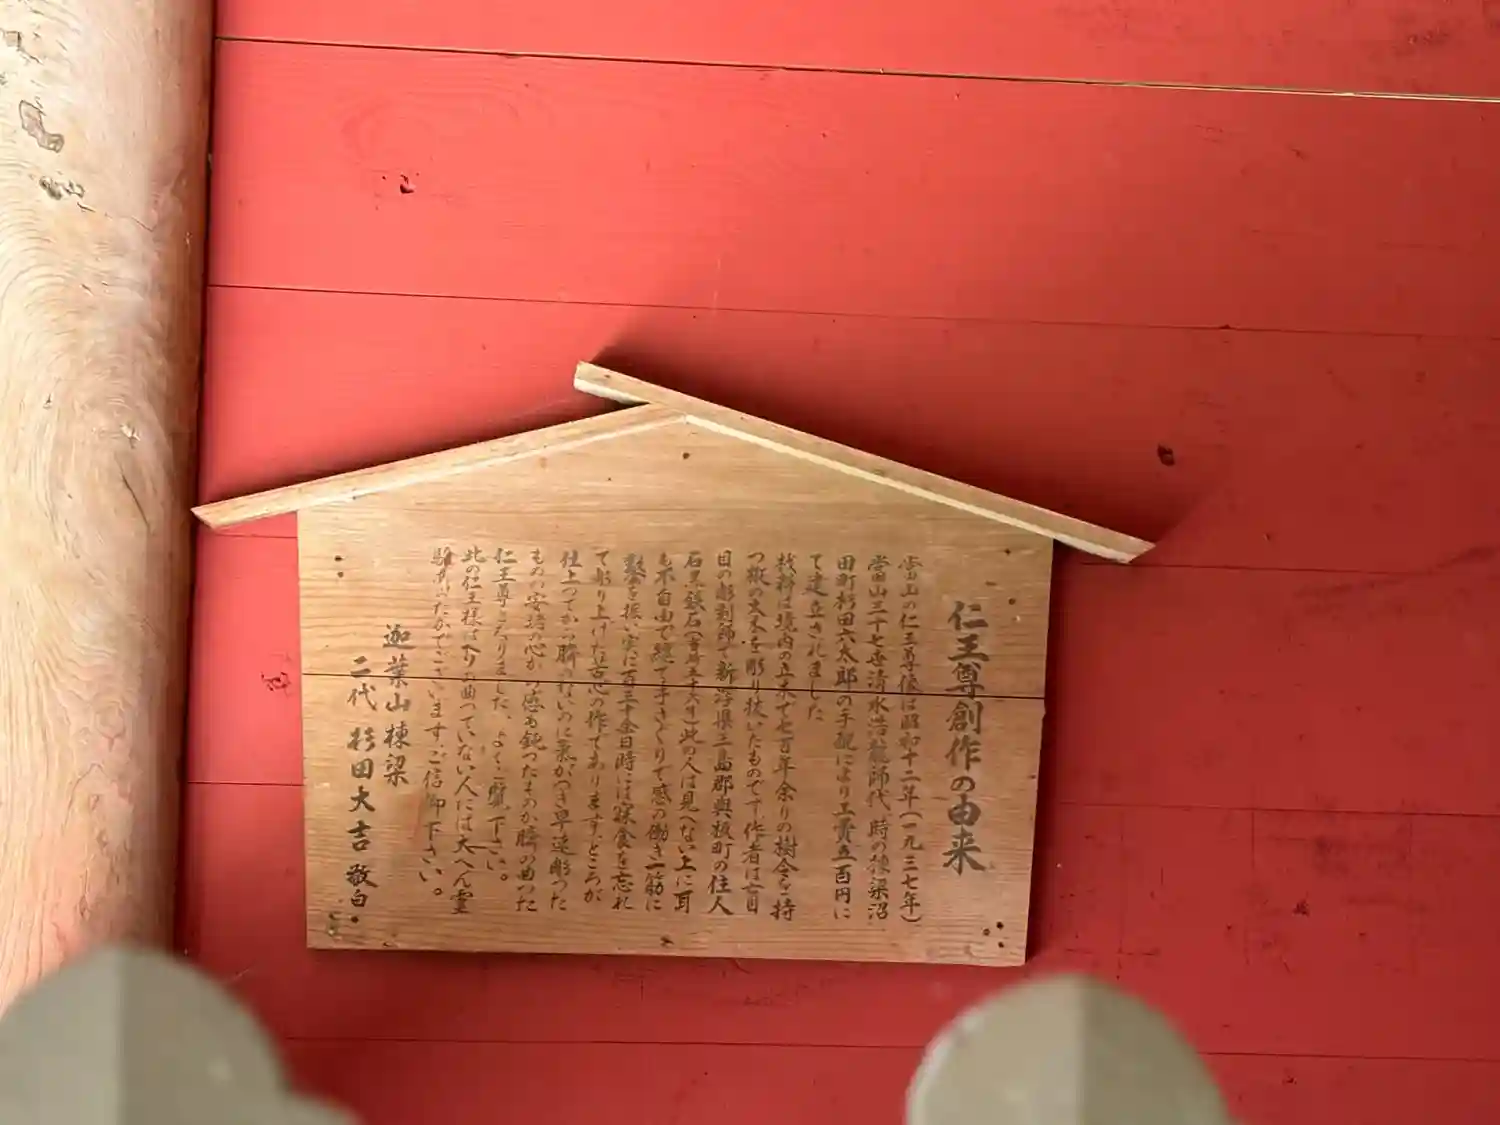 仁王尊創作の由来
当山の仁王尊像は昭和十二年(一九三七年)
当山三十七世清水浩龍師代、時の棟梁沼
田町杉田六太郎の手配により工費五百円に
て建立されました
材料は境内の立木で七百年余りの樹令を持
つ樅の大木を彫り抜いたものです作者は盲目
目の彫刻師で新潟県三島郡與板町の住人
石黒鉄石(当時五十六才)此の人は見へない上に耳
も不自由で縫て手さぐりで感の働き一筋に
鑿を振い実に百三十余日時には寝食を忘れ
て彫り上げた苦心の作であります。ところが
仕上ってから臍のないのに気がつき早速彫った
ものの安堵の心か感も鈍ったものか臍の曲った
仁王尊となりました、よくご覧下さい。
此の仁王様はへりの曲っていない人には大へん霊
験あらたかでございます。ご信仰下さい。
迦葉山棟梁
二代 杉田大吉 敬白